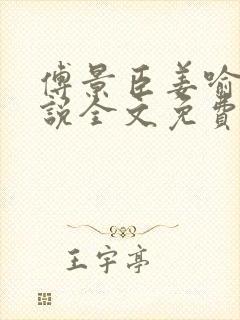 傅景臣姜喻
說全文免費
王宇亭